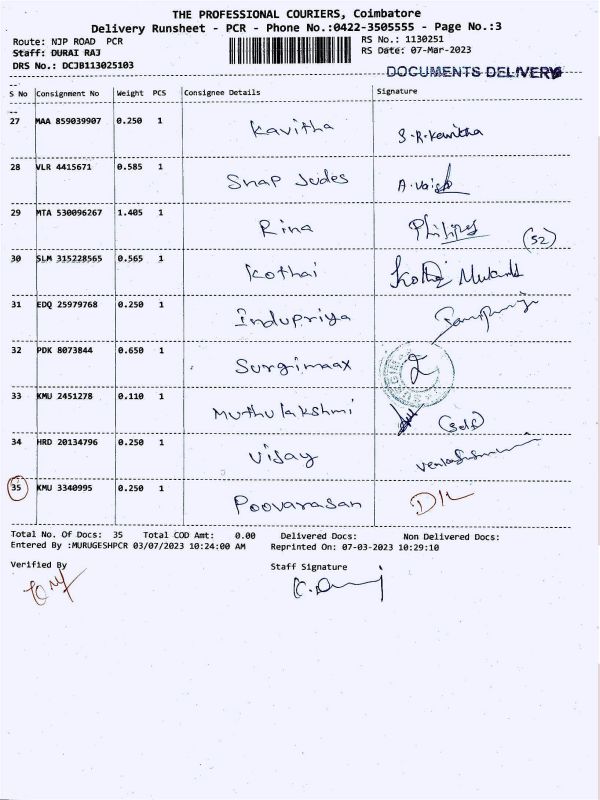 THE PROFESSIONAL COURIERS, Coimbatore
Delivery Runsheet - PCR - Phone No.:0422-3505555 - Page No.:3
Route: NJP ROAD PCR
RS No.: 1130251
Staff: DURAI RAJ
RS Date: 07-Mar-2023
DRS No.: DCJB113025103
DOCUMENTS DELIVERY
S No Consignment No Weight PCS Consignee Details Signature
27 MAA 859039907 0.250 1 Kavitha S.R.Kavitha
28 VLR 4415671 0.585 1 Snap Judes
29 MTA 530096267 1.405 1 Rina Philips
(52)
30 SLM 315228565 0.565 1 Kothai Kothai
31 EDQ 25979768 0.250 1 Indupriya
32 PDK 8073844 0.650 1 Surgimaax
33 KMU 2451278 0.110 1 Muthulakshmi (Self)
34 HRD 20134796 0.250 1 Vijay
35 KMU 3340995 0.250 1 Poovarasan D/L
Total No. Of Docs: 35 Total COD Amt: 0.00 Delivered Docs: Non Delivered Docs:
Entered By :MURUGESHPCR 03/07/2023 10:24:00 AM Reprinted On: 07-03-2023 10:29:10
Verified By Staff Signature